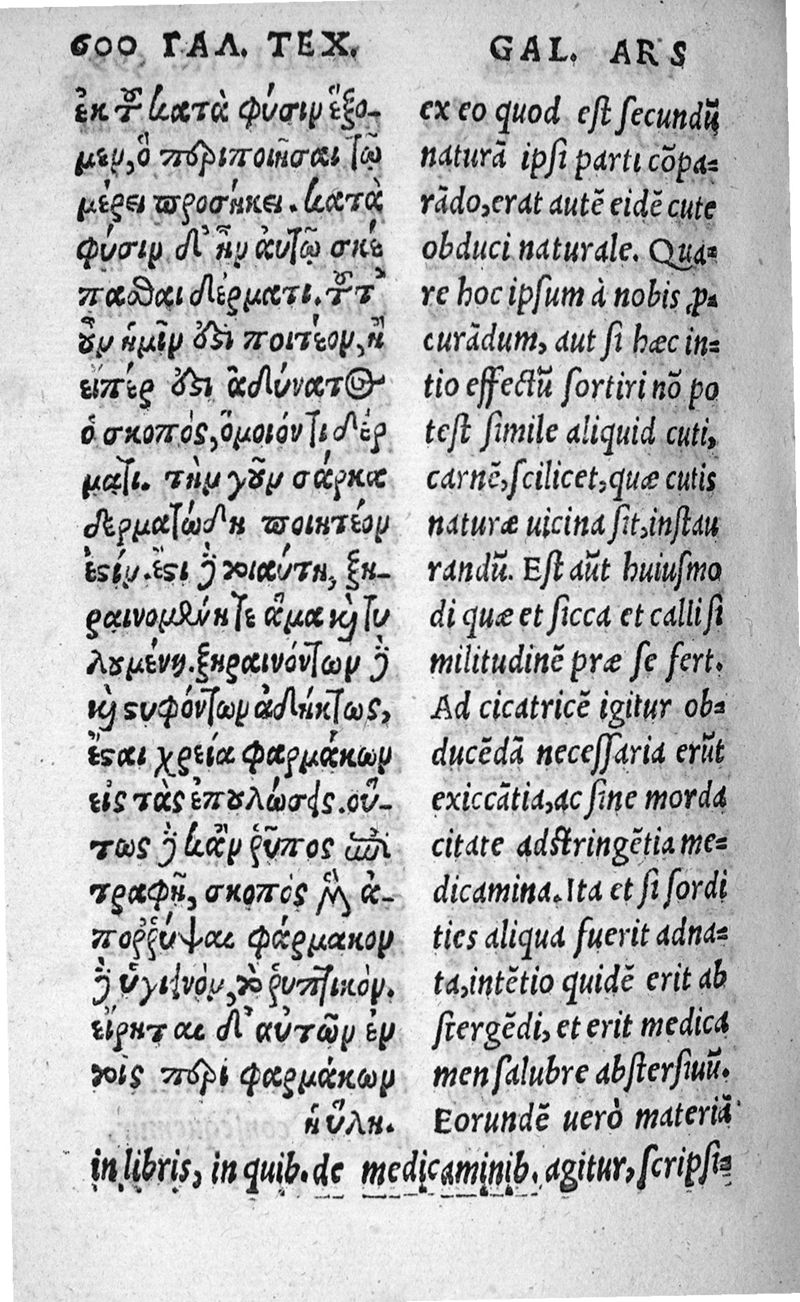 600 ΓΑΛ. ΤΕΧ.
ἐκ τοῦ κατὰ φύσιν ἕξο-
μεν, ὃ περιποιῆσαι τῷ
μέρει προσήκει. κατὰ
φύσιν δ' ἦν αὐτῷ σκέ
πασθαι δέρματι. τοῦτ'
οὖν ἡμῖν ἐστὶ ποιτέον, ἢ
εἴπερ ἐστὶ ἀδύνατος
ὁ σκοπὸς, ὅμοιόν τι δέρ
ματι. τὴν γοῦν σάρκα
δερματώδη ποιητέον
ἐστίν. ἔστι δὲ τοιαύτη, ξη-
ραινομένη τε ἅμα καὶ τυ
λουμένη. ξηραινόντων δὲ
καὶ στυφόντων ἀδήκτως,
ἔσται χρεία φαρμάκων
εἰς τὰς ἐπουλώσεις. οὕ-
τως δὲ κἂν ῥύπος ἐπι
τραφῇ, σκοπὸς μὲν ἀ-
ποῤῥύψαι φάρμακον
δὲ ὑγιεινὸν, τὸ ῥυπτικὸν.
εἴρηται δ' αὐτῶν ἐν
τοῖς περὶ φαρμάκων
ἡ ὕλη.
GAL. ARS
ex eo quod est secundũ
naturã ipsi parti cõpa-
rãdo, erat autẽ eidẽ cute
obduci naturale. Qua-
re hoc ipsum à nobis ꝓ-
curãdum, aut si hæc in-
tio effectũ sortiri nõ po
test simile aliquid cuti,
carnẽ, scilicet, quæ cutis
naturæ uicina sit, instau
randũ. Est aũt huiusmo
di quæ et sicca et calli si
militudinẽ præ se fert.
Ad cicatricẽ igitur ob-
ducẽdã necessaria erũt
exiccãtia, ac sine morda
citate adstringẽtia me-
dicamina. Ita et si sordi
ties aliqua fuerit adna-
ta, intẽtio quidẽ erit ab
stergẽdi, et erit medica
men salubre abstersiuũ.
Eorundẽ uerò materiã
in libris, in quib. de medicaminib. agitur, scripsi-